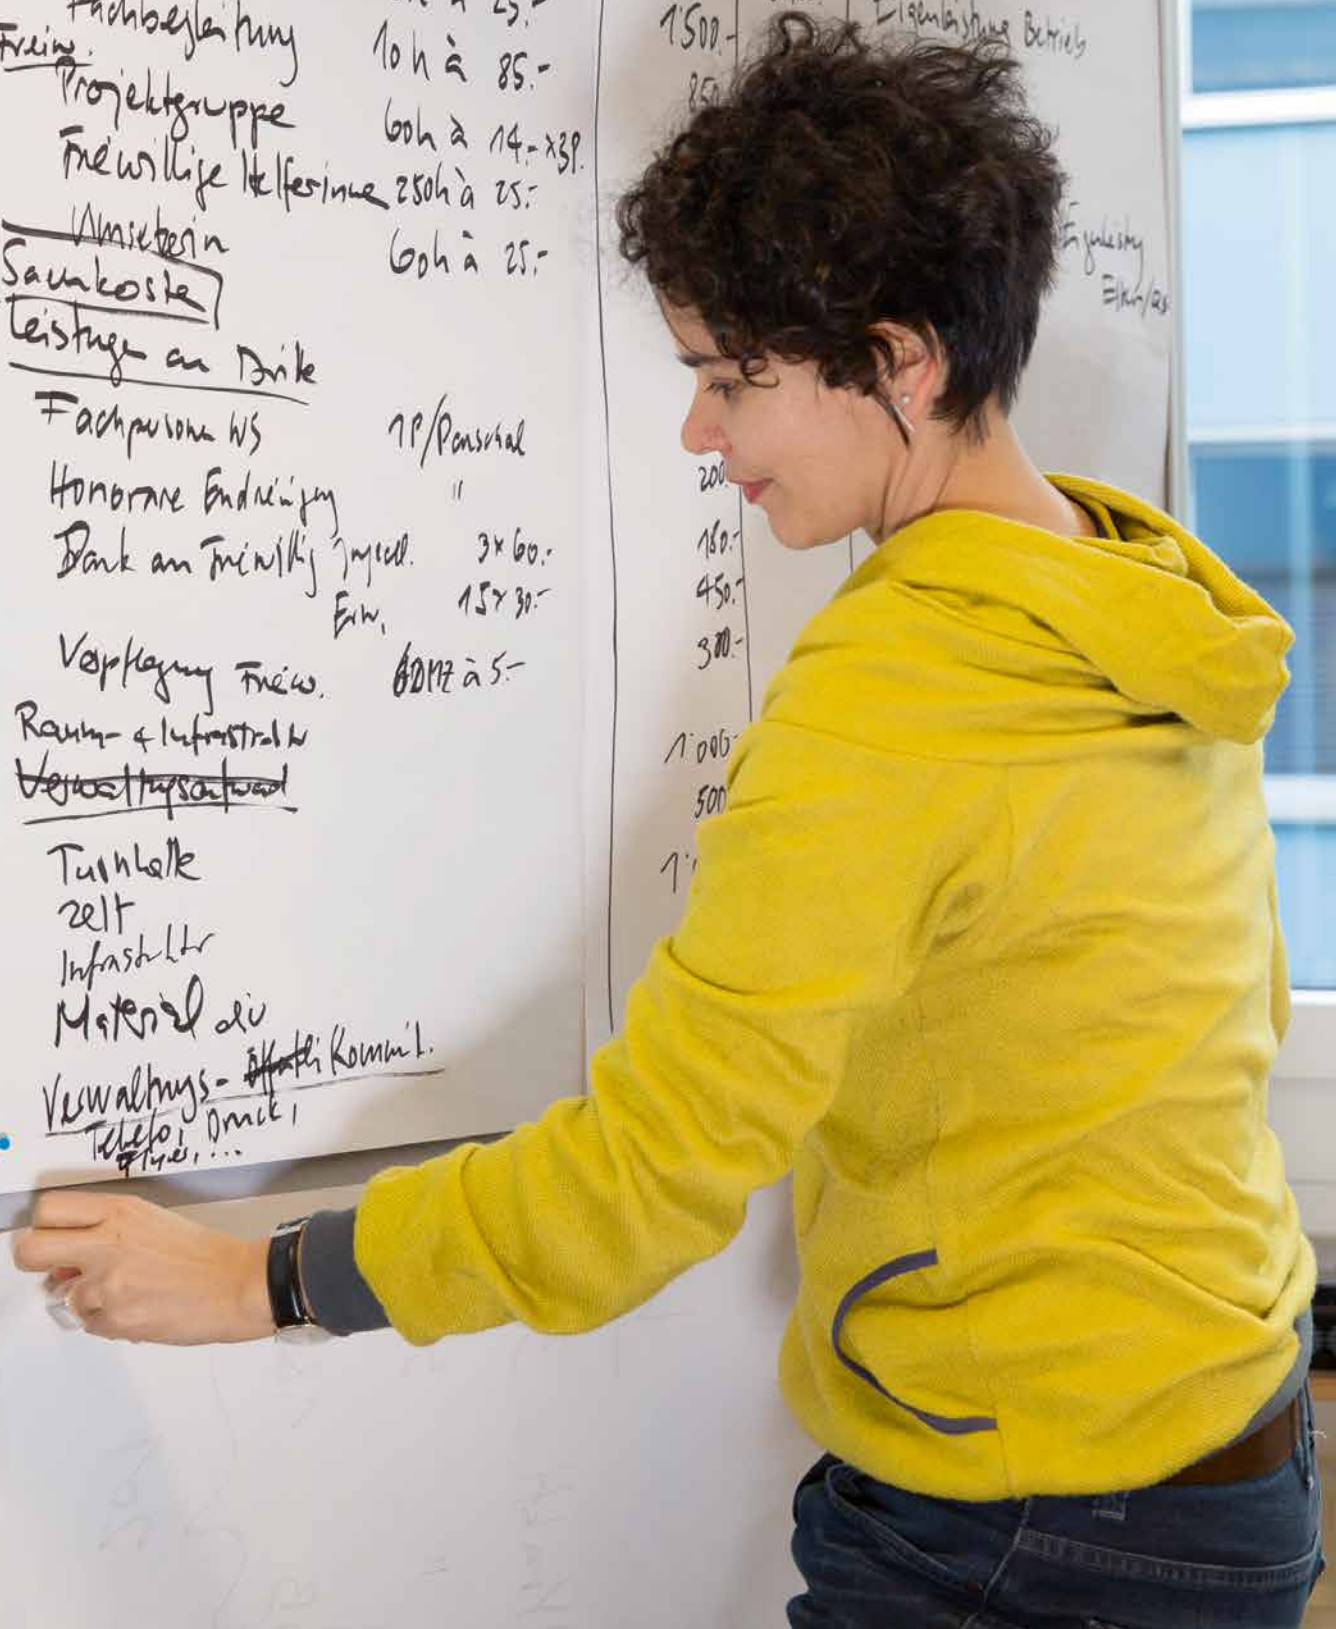 Fachbegleitung 10h à 85.-
Freiw.
Projektgruppe 60h à 14.- x3P.
Freiwillige Helferinne 250h à 25.-
Umsetzerin 60h à 25.-
Sachkoste
Leistunge an Dritte
Fachperson WS 1P/Pauschal
Honorare Endreinigung "
Dank an Freiwillig Jugendl. 3x60.-
Erw. 15x30.-
Verpflegung Freiw. 60MZ à 5.-
Raum- & Infrastruktur
Verwaltungsaufwand
Turnhalle
Zelt
Infrastruktur
Material div
Verwaltungs- Kommit.
Telefo, Druck,
Flyer, ...
1'500.-
850
200.
180.-
450.-
300.-
1'000.-
500
1'
Eigenleistung Betrieb
Eigenleistung